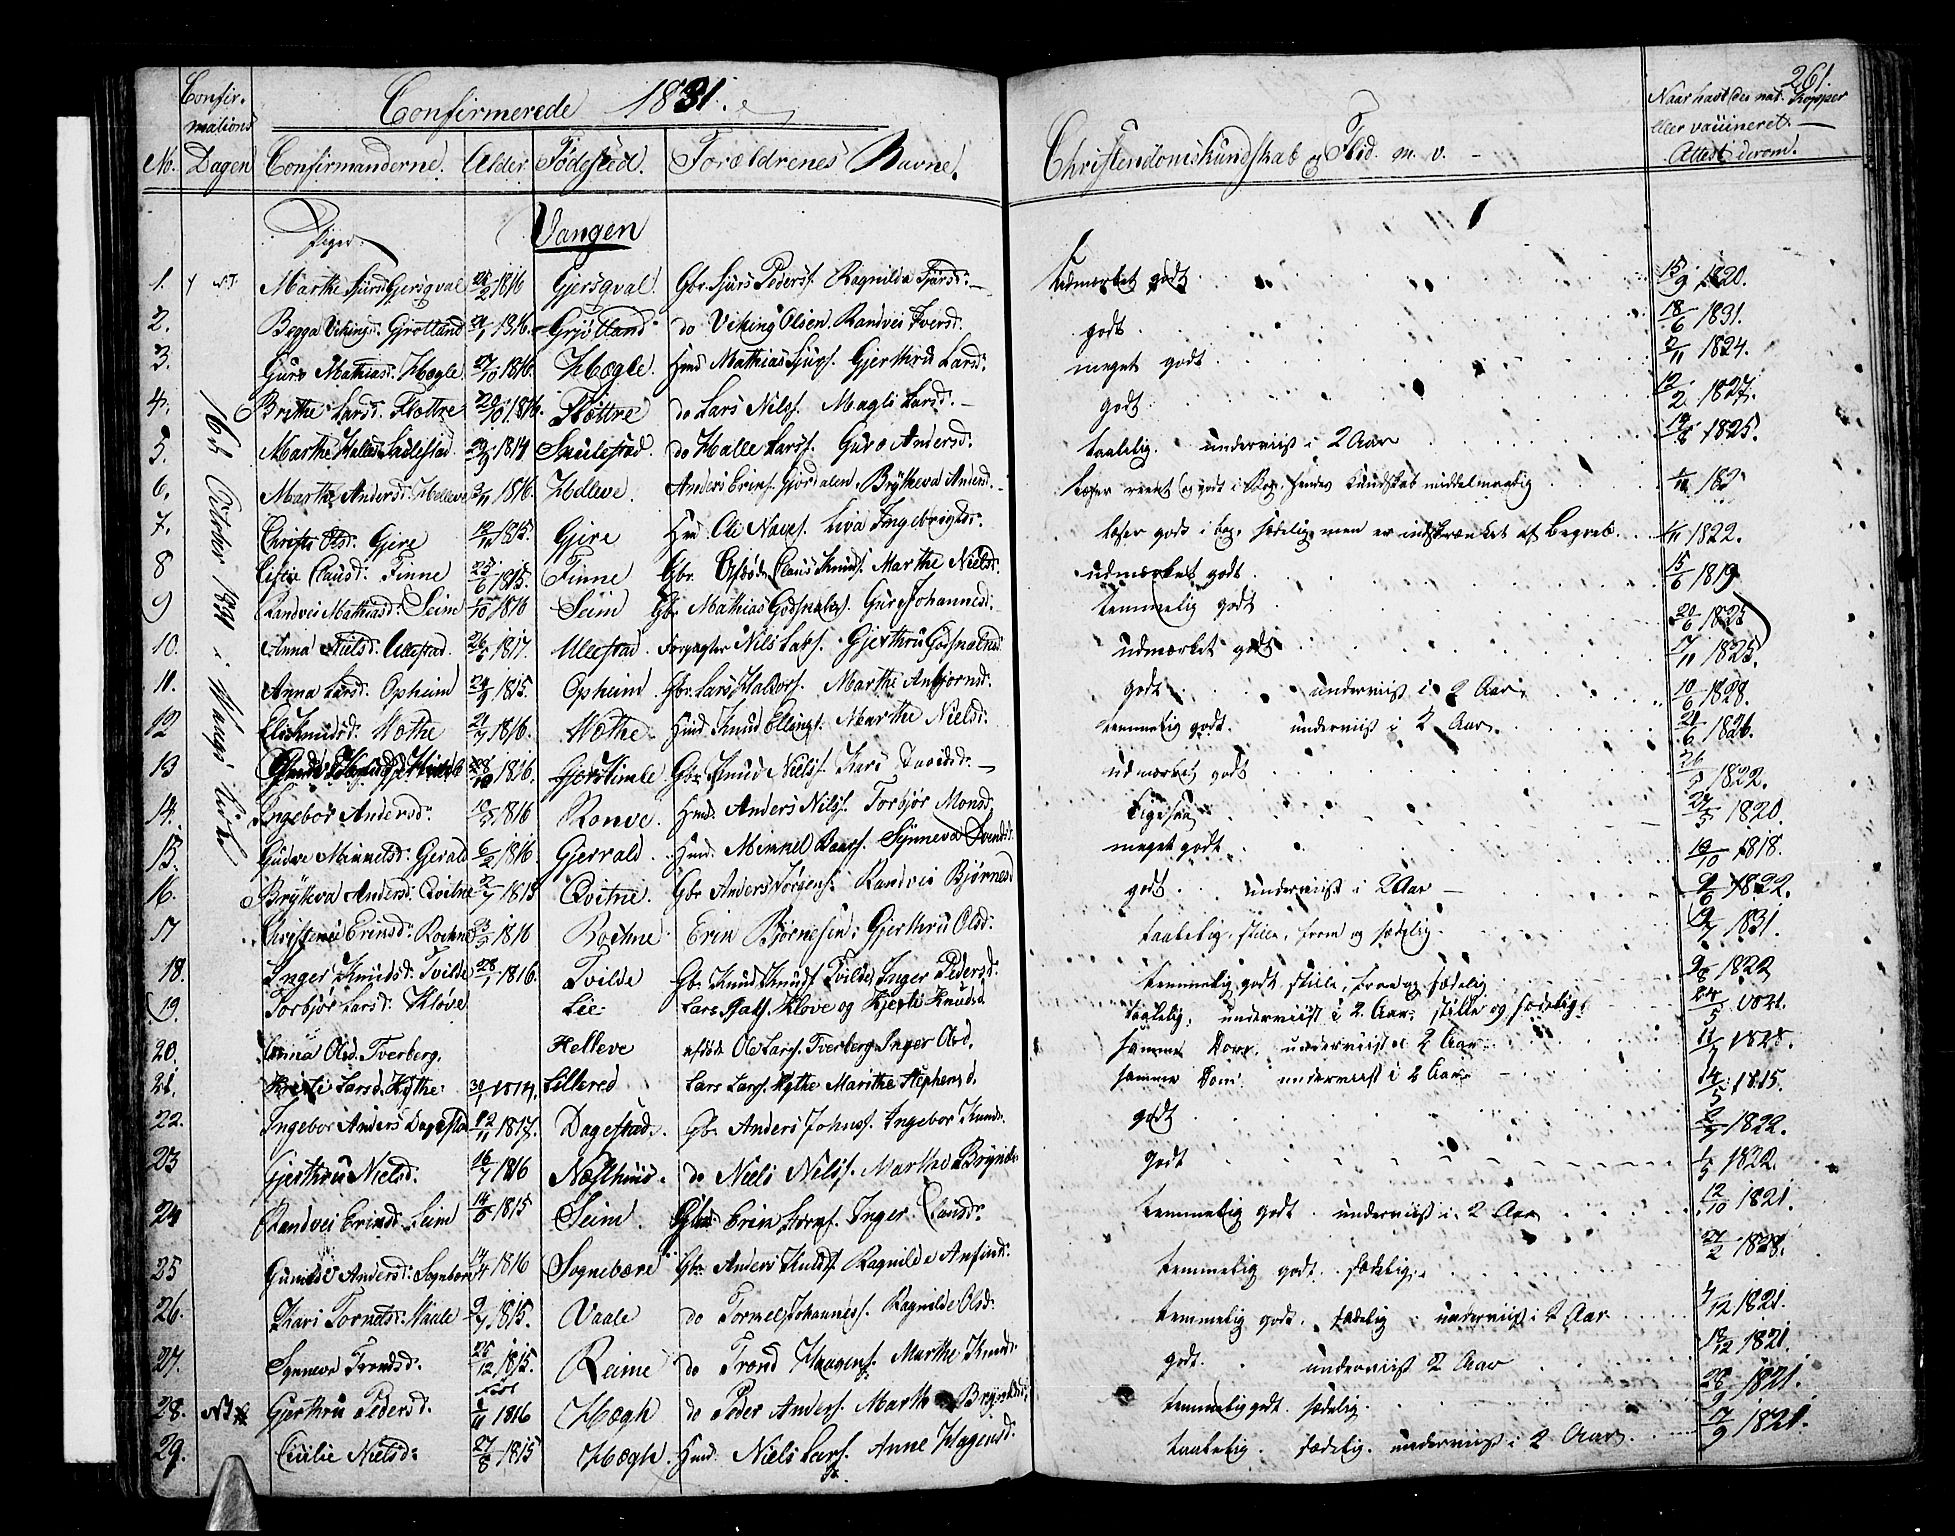 261.
Confirmations Dagen
Confirmerede 1831.
No. Dagen Confirmanderne. Alder Fødested. Forældrenes Navne.
Christendomskundskab og Flid. m. v.
Naar havt de nat. Kopper
eller vaccineret.
Attest derom.
Piger
Vangen
October 1831 i Vangs Kirke
1. Marthe Sjurs Gjersqval 1816 Gjersqval. Gbr. Sjurs Peders. Ragnilda Sjursd: udmærket godt 15/9 1820.
2. Begga Vikings. Grotland 1816. Grjotland do Viking Olsen. Randvei Iversd. godt 18/6 1831.
3. Guro Mathiasd. Hægle 27/10 1816. Hægle. Hmd Mathias Sjurs. Gjerthru Larsd: meget godt 2/11 1824.
4. Brithe Larsd. Flottre 20/10 1816. Flöttre do Lars Nils. Magli Larsd. godt 12/2 1827.
5. Marthe Hallesd. Saulestad 1814 Saulestad do Halle Lars. Guro Andersd. taalelig. underviist i 2 Aar 1825.
6. Marthe Andersd. Helleve 1816. Helleve. Anders Erins. Gjordalen, Brytheva Andersd. læser reent og godt i Bog, hendes Kundskab middelmaadig
7. Christi Olsd: Gjere 12/11 1815. Gjere Hmd Ole Naves. Liva Ingebrigtsd. læser godt i bog, sædelig, men er indskrænket af Begreb. 1822.
8 Lisie Clausd: Finne 25/6 1815. Finne Gbr. Afdöde Claus Knuds. Marthe Nielsd. udmærket godt 15/6 1819
9) Randvei Mathiasd: Seim 1816 Seim Gbr Mathias Godskalks. Guro Johannesd: temmelig godt 20/6 1825
10. Anna Nielsd. Ullestad. 26/5 1817. Ullestad. Forpagter Nils Lars. Gjerthru Godskalksd. udmærket godt 1825.
11. Anna Larsd. Opheim 24/9 1815. Opheim Gbr. Lars Haldors. Marthe Anbjornsd. godt underviist i 2 Aar. 10/6 1828.
12 Elis Knudsd: Mothe 1816. Mothe Hmd. Knud Ellings. Marthe Nielsd: temmelig godt. underviist i 2 Aar 21/6 1826.
13 1816. Gjerstimle Gbr Knud Niels. Kari Davidsd. udmærket godt 1822.
14. Ingebor Andersd: 1816 Ronve. Hmd. Anders Nils. Torbjor Monsd. Ligesaa 1820.
15. Gudve Minnelsd: Gerald 6/2 1816 Gjerrald Hmd. Minnel Baars. Synneva Svendsd. meget godt 19/10 1818.
16. Brytheva Andersd: Qvitne 1815 Qvitne Gbr Anders Jörgens. Randvei Bjørnesd godt underviist i 2 Aar 1822.
17 Christense Erinsd: Rochne 1816 Rochne Erin Bjørnesen: Gjerthru Olsd: taalelig, stille, from og sædelig. 1831.
18. Inger Knudsd: Tvilde 28/1 1816. Tvilde Gbr. Knud Knuds Tvilde, Inger Pedersd. temmelig godt, stille, from og sædelig 9/8 1822
19. Torbjör Larsd: Klöve Lie Lars Klöve og Kjerti Knudsd taalelig, underviist i 2 Aar, stille og sædelig.
20. Anna Olsd. Tverberg. Helleve afdöde Ole Lars. Tverberg, Inger Olsd. samme Dom. underviist i 2 Aar 1828.
21. Larsd. Hythe 1814. Lillered Lars Lars. Hythe Marithe Stephensd. samme Dom. underviist i 2 Aar 14/5 1815.
22. Ingebor Anders Dagestad 12/11 1817. Dagestad. Gbr Anders Johns. Ingebor Knudsd. godt 1822.
23 Gjerthru Nielsd. 16/7 1816 Næsthuus. do Niels Nils. Marthe Brynils. godt 1822.
24 Randvei Erinsd: Seim 1815 Seim. Erin Storms. Inger Clausd: temmelig godt. underviist i 2 Aar 12/10 1821.
25 Gunilde Andersd: Sognebære 1816 Sognebære Gbr. Anders Knuds Ragnilde Anfinds. temmelig godt. sædelig. 27/2 1828.
26. Kari Tormelsd: Vaale 9/7 1815. Vaale do Tormel Johannes. Ragnilde Olsd. temmelig godt, sædelig underviist i 2 Aar 4/12 1821.
27. Synneve Trondsd: 25/12 1815. Reime do Trond Haagens. Marthe Knudsd. godt. underviist 2 Aar 12/12 1821.
28. Gjerthru Pedersd. 1/11 1816 Hægh do Peder Anders. Marthe Brynildsd. temmelig godt. sædelig. 28/9 1821.
29. Cicilie Nielsd: 27/8 1815 Hægh. Hmd. Niels Lars. Anne Hagensd. taalelig. sædelig. underviist i 2 Aar. 17/9 1821.